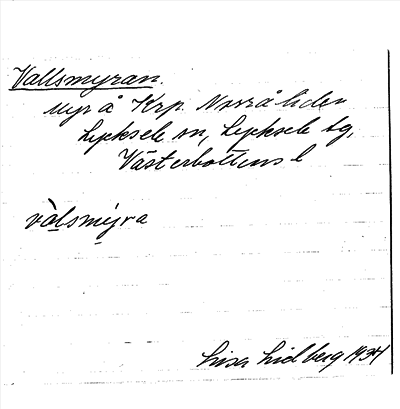 Vallsmyran.
myr å Krp. Norråliden
Lycksele sn, Lycksele tg,
Västerbottens l
vàlsmýra
Lisa Lidberg 1934